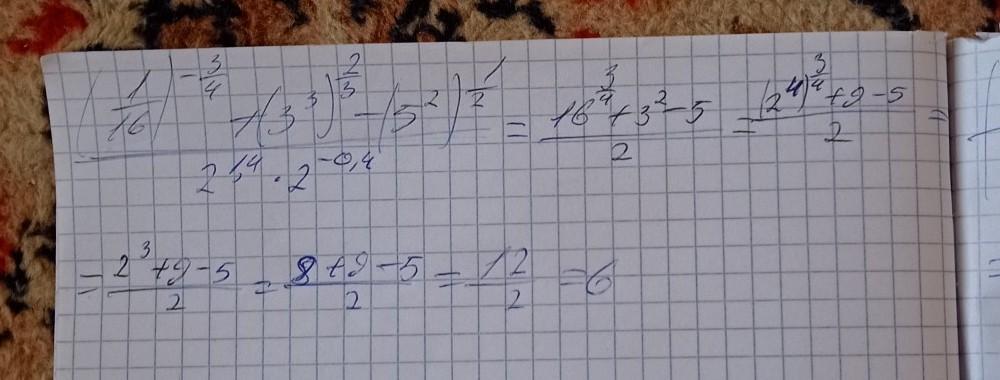 ((1/16)^(-3/4) + (3^3)^(2/3) - (5^2)^(1/2)) / (2^(1,4) · 2^(-0,4)) = (16^(3/4) + 3^2 - 5) / 2 = ((2^4)^(3/4) + 9 - 5) / 2 =
= (2^3 + 9 - 5) / 2 = (8 + 9 - 5) / 2 = 12 / 2 = 6